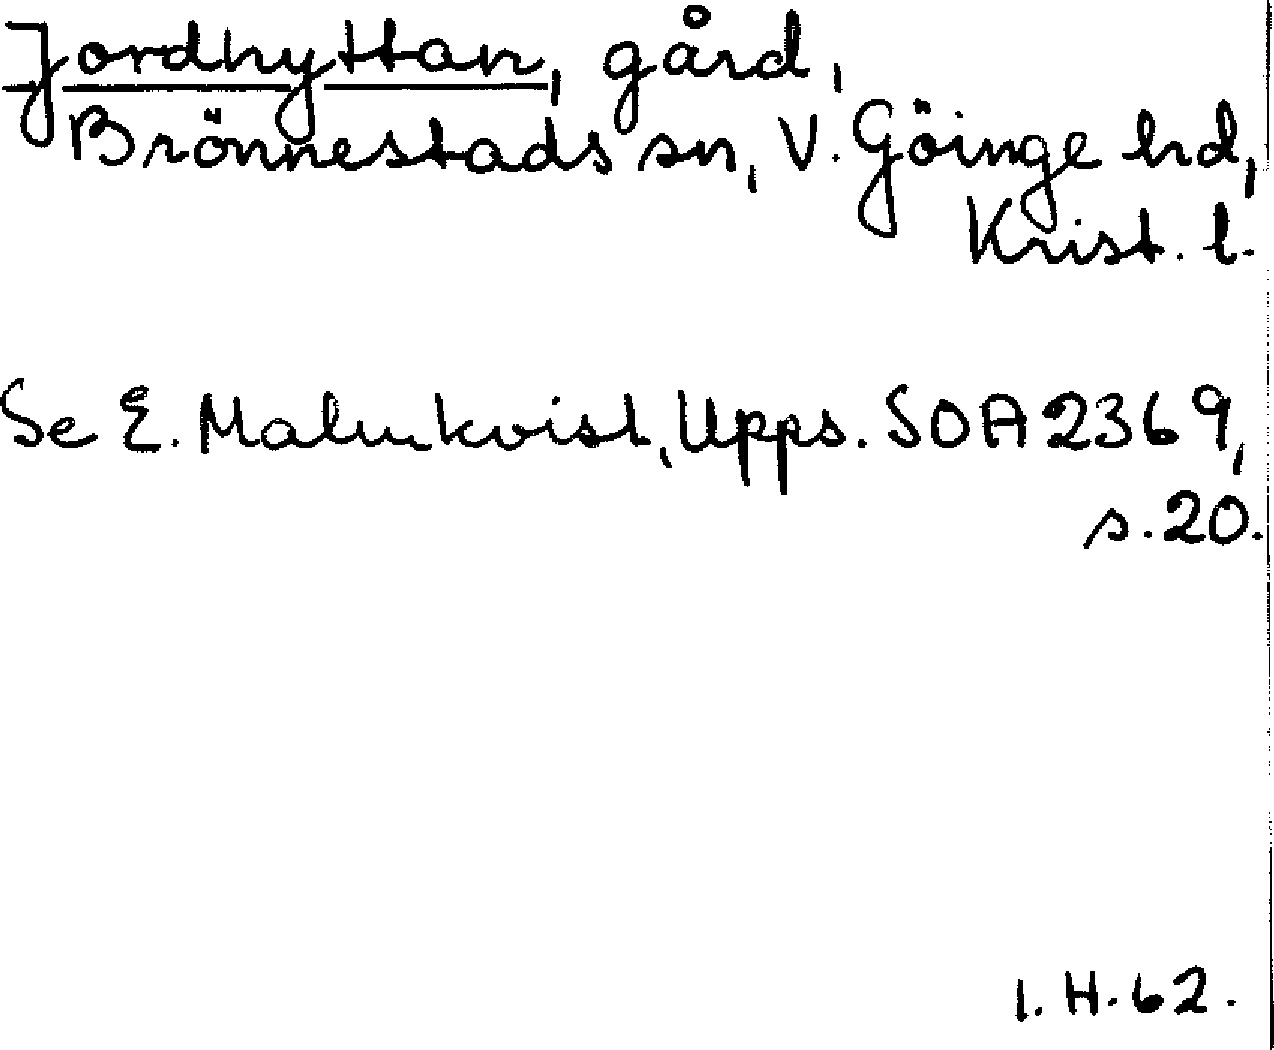 Jordhyttan, gård,
Brönnestads sn, V. Göinge hd,
Krist. l.
Se E. Malmkvist, Upps. SOA 2369,
s. 20.
I. H. 62.